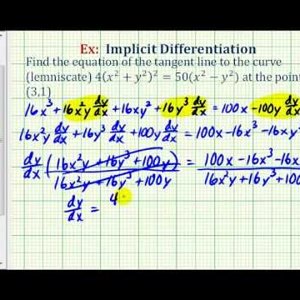 Ex: Implicit Differentiation
Find the equation of the tangent line to the curve
(lemniscate) 4(x² + y²)² = 50(x² − y²) at the point
(3,1)
16x³ + 16x²y dy/dx + 16xy² + 16y³ dy/dx = 100x − 100y dy/dx
16x²y dy/dx + 16y³ dy/dx + 100y dy/dx = 100x − 16x³ − 16xy
dy/dx (16x²y + 16y³ + 100y) / (16x²y + 16y³ + 100y) = (100x − 16x³ − 16x) / (16x²y + 16y³ + 100)
dy/dx = 4